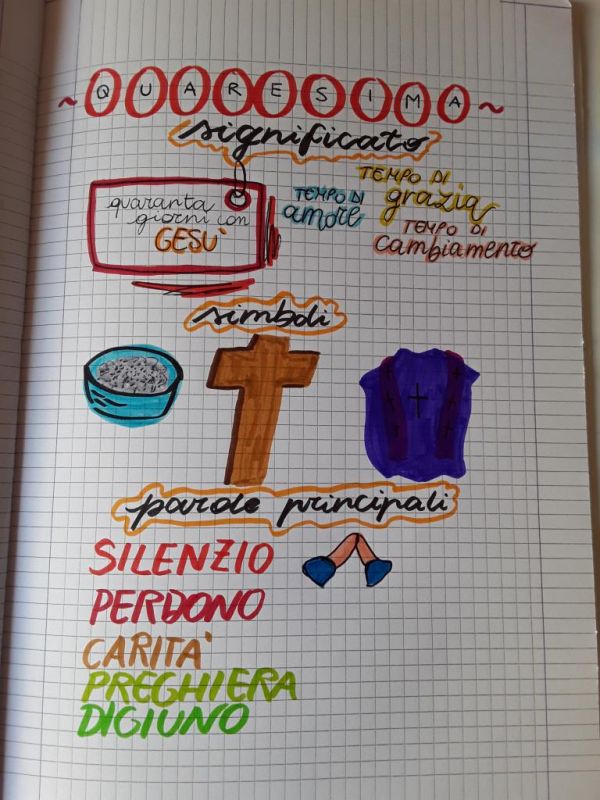 ~QUARESIMA~
significato
quaranta
giorni con
GESÙ
TEMPO DI
amore
TEMPO DI
grazia
TEMPO DI
cambiamento
simboli
parole principali
SILENZIO
PERDONO
CARITÀ
PREGHIERA
DIGIUNO